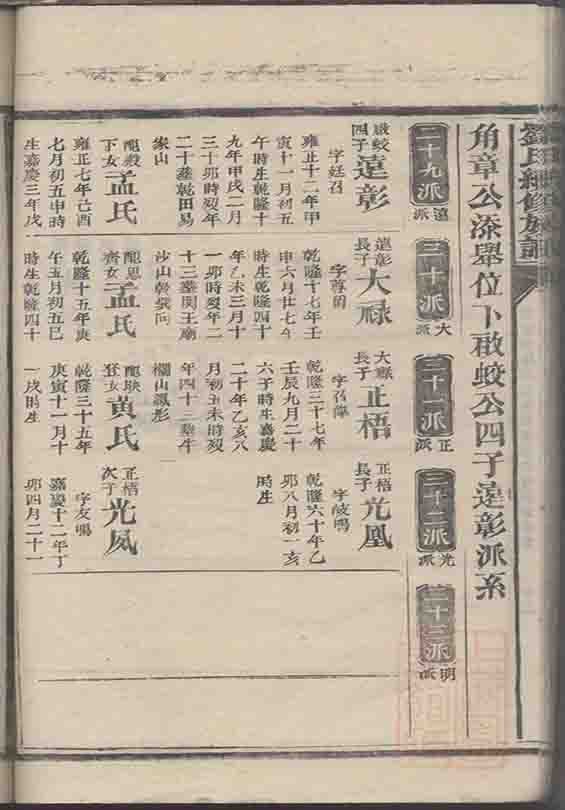 劉氏續修族譜
角章公添舉位下啟蛟公四子遠彰派系
二十九派 遠派
三十派 大派
三十一派 正派
三十二派 光派
三十三派 明派
啟蛟四子遠彰
字廷召
雍正十二年甲
寅十一月初五
午時生乾隆十
九年甲戌二月
三十卯時歿年
二十葬乾田易
家山
配殿下女孟氏
雍正七年己酉
七月初五申時
生嘉慶三年戊
遠彰長子大祿
字尊爵
乾隆十七年壬
申六月廿七午
時生乾隆四十
年乙未三月十
一卯時歿年二
十三葬関王廟
沙山
配恩齊女孟氏
乾隆十五年庚
午五月初五巳
時生乾隆四十
大祿長子正梧
乾隆三十七年
壬辰九月二十
六子時生嘉慶
二十年乙亥八
月初五未時歿
年四十三葬牛
欄山鳳形
黄氏
乾隆三十五年
庚寅十一月十
一戌時生
正梧長子光凰
字岐鳴
乾隆六十年乙
卯八月初一亥
時生
正梧次子光凤
字友鳴
嘉慶十二年丁
卯四月二十一